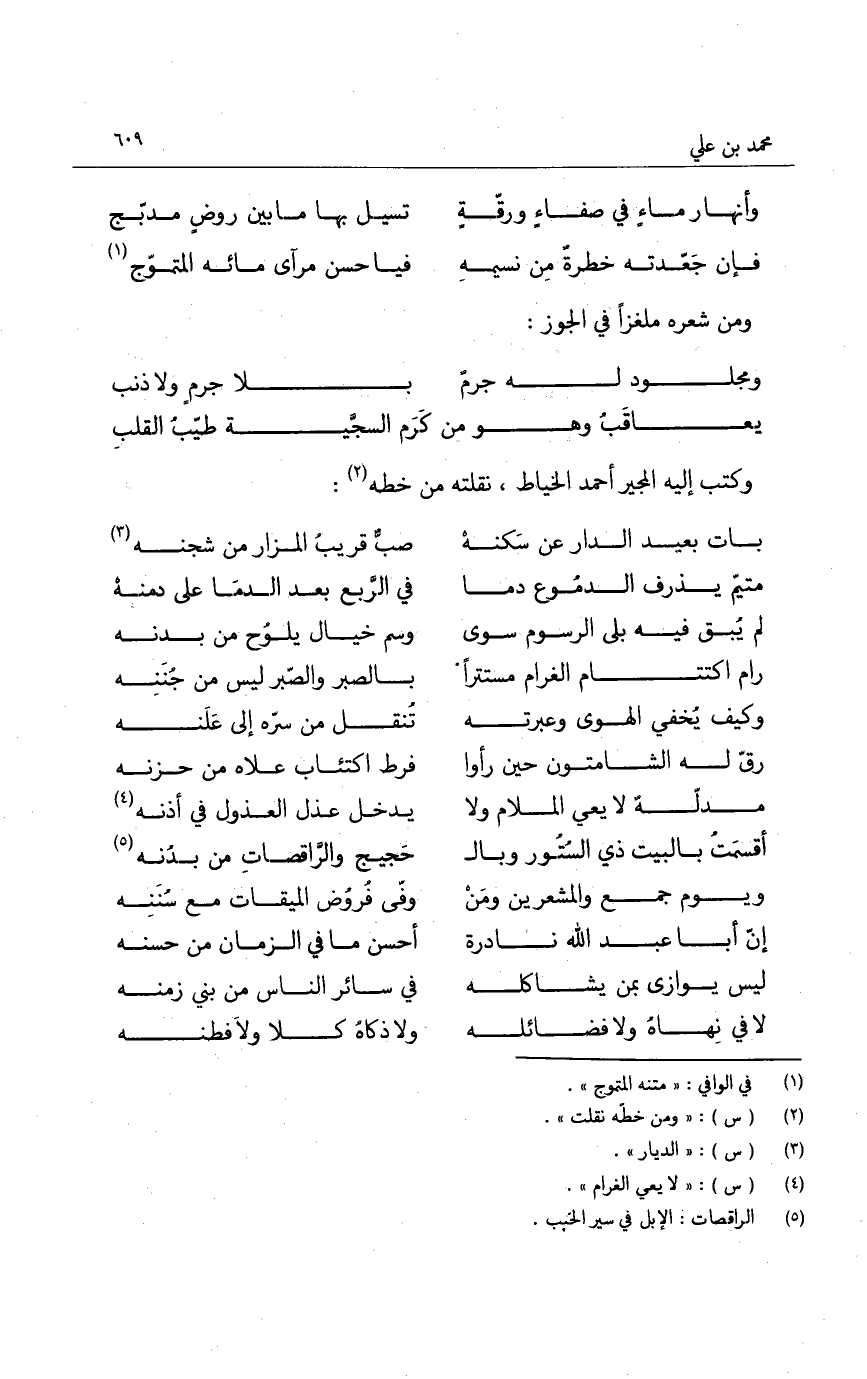 محمد بن علي ٦٠٩
وأنهار ماءٍ في صفاءٍ ورقّةٍ تسيل بها مابين روضٍ مدبّج
فإن جَعّدته خطرةٌ مِن نسيمهِ فيا حسن مرآى مائه المتموّج(١)
ومن شعره ملغزاً في الجوز :
ومجلود له جرمٌ بلا جرمٍ ولا ذنب
يعاقَبُ وهو من كَرَم السجيَّة طيّبُ القلبِ
وكتب إليه المجير أحمد الخياط ، نقلته من خطه(٢) :
بات بعيد الدار عن سَكنهْ صبٌّ قريبُ المزار من شجنه(٣)
متيمّ يذرف الدمُوع دما في الرَّبع بعد الدمَا على دمنهْ
لم يُبق فيه بلى الرسوم سوى وسم خيال يلوُح من بدنه
رام اكتتام الغرام مستتراً بالصبر والصّبر ليس من جُنَنِه
وكيف يُخفي الهوى وعبرته تُنقل من سرّه إلى عَلَنه
رقّ له الشامتون حين رأوا فرط اكتئاب علاه من حزنه
مدلّهٌ لا يعي الملام ولا يدخل عذل العذول في أذنه(٤)
أقسمَتُ بالبيت ذي السُتُور وبالـ حَجيج والرَّاقصاتِ من بدُنه(٥)
ويوم جمع والمشعرين ومَنْ وفّى فُروُض الميقات مع سُنَنِه
إنّ أبا عبد الله نادرة أحسن ما في الزمان من حسنه
ليس يوازى بمن يشاكله في سائر الناس من بني زمنه
لا في نِهاهُ ولا فضائله ولا ذكاهُ كلا ولا فطنه
(١) في الوافي : « متنه المتموج » .
(٢) ( س ) : « ومن خطّه نقلت » .
(٣) ( س ) : « الديار » .
(٤) ( س ) : « لا يعي الغرام » .
(٥) الراقصات : الإبل في سير الخبب .